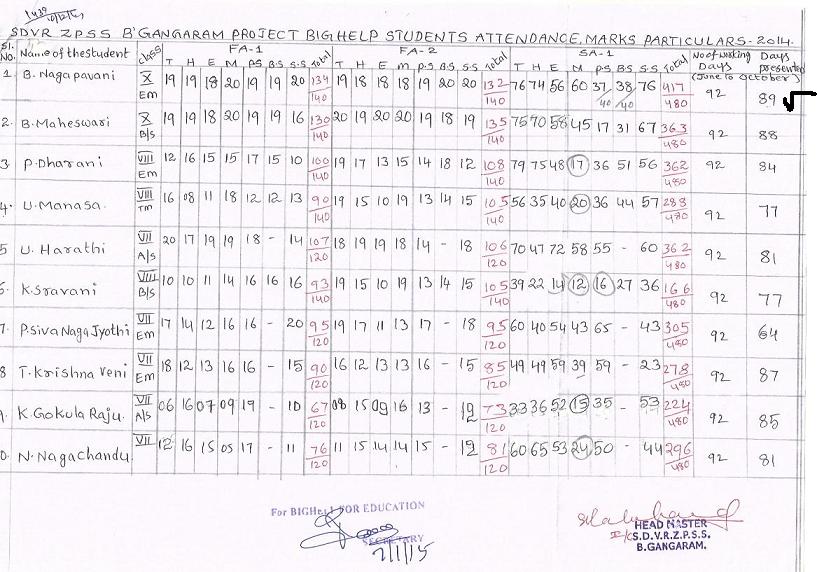 1439
10/12/15
SDVR ZPSS B'GANGARAM PROJECT BIGHELP STUDENTS ATTENDANCE, MARKS PARTICULARS-2014.
Sl. No. Name of the student class FA-1 FA-2 SA-1 No of working Days (June to October) Days presented
T H E M P.S B.S S.S Total T H E M P.S B.S S.S Total T H E M P.S B.S S.S Total
1. B. Nagapavani X Em 19 19 18 20 19 19 20 134/140 19 18 18 18 19 20 20 132/140 76 74 56 60 37/40 38/40 76 417/480 92 89 √
2. B. Maheswari X B/s 19 19 18 20 19 19 16 130/140 20 19 20 20 19 18 19 135/140 75 70 58 45 17 31 67 363/480 92 88
3. P. Dharani VIII Em 12 16 15 15 17 15 10 100/140 19 17 13 15 14 18 12 108/140 79 75 48 17 36 51 56 362/480 92 84
4. U. Manasa. VIII Tm 16 08 11 18 12 12 13 90/140 19 15 10 19 13 14 15 105/140 56 35 40 20 36 44 57 288/480 92 77
5 U. Harathi VII A/s 20 17 19 19 18 - 14 107/120 18 19 19 18 14 - 18 106/120 70 47 72 58 55 - 60 362/480 92 81
6. K. Sravani VIII B/s 10 10 11 14 16 16 16 93/140 19 15 10 19 13 14 15 105/140 39 22 14 12 16 27 36 166/480 92 77
7. P. Siva Naga Jyothi VII Em 17 14 12 16 16 - 20 95/120 19 17 11 13 17 - 18 95/120 60 40 54 43 65 - 43 305/480 92 64
8 T. Krishna Veni VII Em 18 12 13 16 16 - 15 90/120 16 12 13 13 16 - 15 85/120 49 49 59 39 59 - 23 278/480 92 87
9. K. Gokula Raju. VII A/s 06 16 07 09 19 - 10 67/120 08 15 09 16 13 - 12 73/120 33 36 52 15 35 - 53 224/480 92 85
0. N. Nagachandu. VII 12 16 15 05 17 - 11 76/120 11 15 14 14 15 - 12 81/120 60 65 53 24 50 - 44 296/480 92 81
For BIGHelp FOR EDUCATION
SECRETARY
2/1/15
HEAD MASTER
I/c S.D.V.R.Z.P.S.S.
B.GANGARAM.